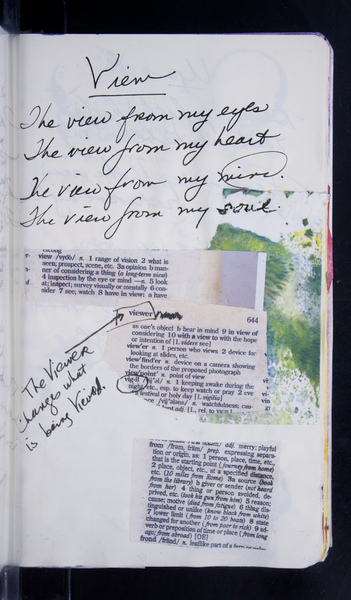 View
The view from my eyes
The view from my heart
The view from my mind.
The view from my soul
view /vyōō/ n. 1 range of vision 2 what is
seen; prospect, scene, etc. 3a opinion b man-
ner of considering a thing (a long-term view)
4 inspection by the eye or mind —v. 5 look
at; inspect; survey visually or mentally 6 con-
sider 7 see; watch 8 have in view: a have
viewer
644
as one's object b bear in mind 9 in view of
considering 10 with a view to with the hope
or intention of [L videre see]
view'er n. 1 person who views 2 device for
looking at slides, etc.
view'find'er n. device on a camera showing
the borders of the proposed photograph
view'point' n. point of view
vig·il n. 1 keeping awake during the
night, etc., esp. to keep watch or pray 2 eve
festival or holy day [L vigilia]
n. watchfulness; cau-
adj. [L, rel. to
The Viewer
changes what
is being viewed.
from /frəm, främ/ prep. expressing separa-
tion or origin, as: 1 person, place, time, etc.,
that is the starting point (journey from home)
2 place, object, etc., at a specified distance,
etc. (10 miles from Rome) 3a source (book
from the library) b giver or sender (not heard
from her) 4 thing or person avoided, de-
prived, etc. (took his gun from him) 5 reason;
cause; motive (died from fatigue) 6 thing dis-
tinguished or unlike (know black from white)
7 lower limit (from 10 to 20 boats) 8 state
changed for another (from poor to rich) 9 ad-
verb or preposition of time or place (from long
ago; from abroad) [OE]
frond /fränd/ n. leaflike part of a fern